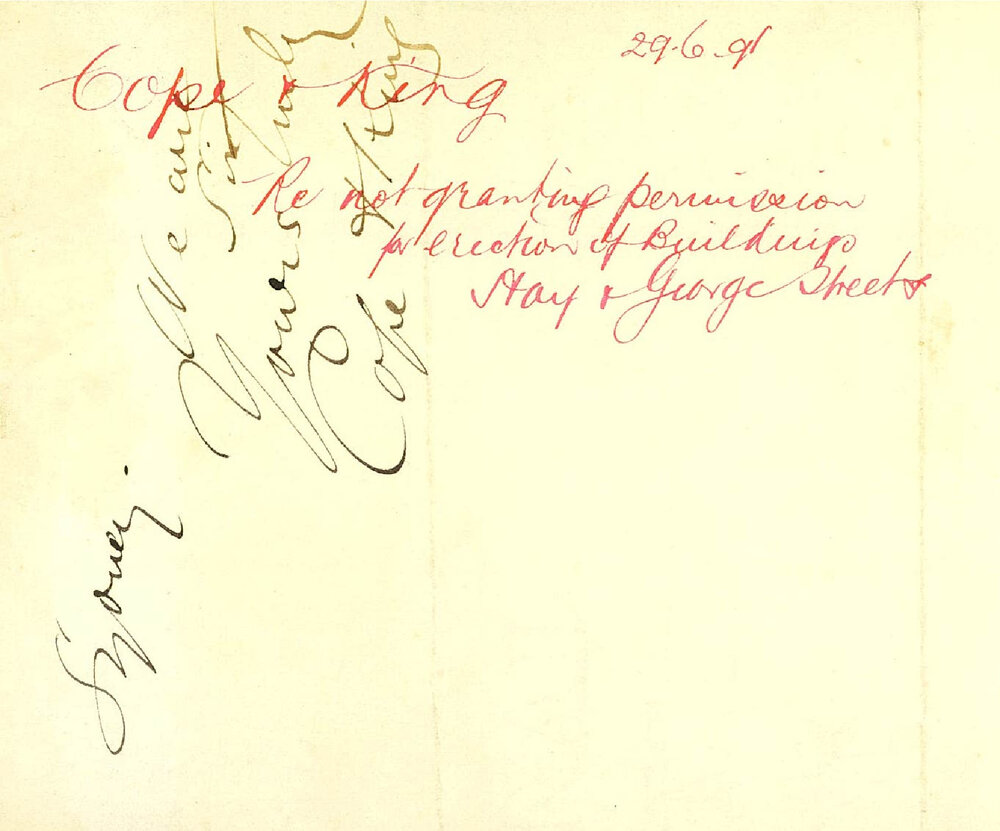 29-6-91
Cope & King
Re not granting permission
for erection of Buildings
Hay & George Streets
Sydney.
We are
Sir
Yours truly
Cope & King